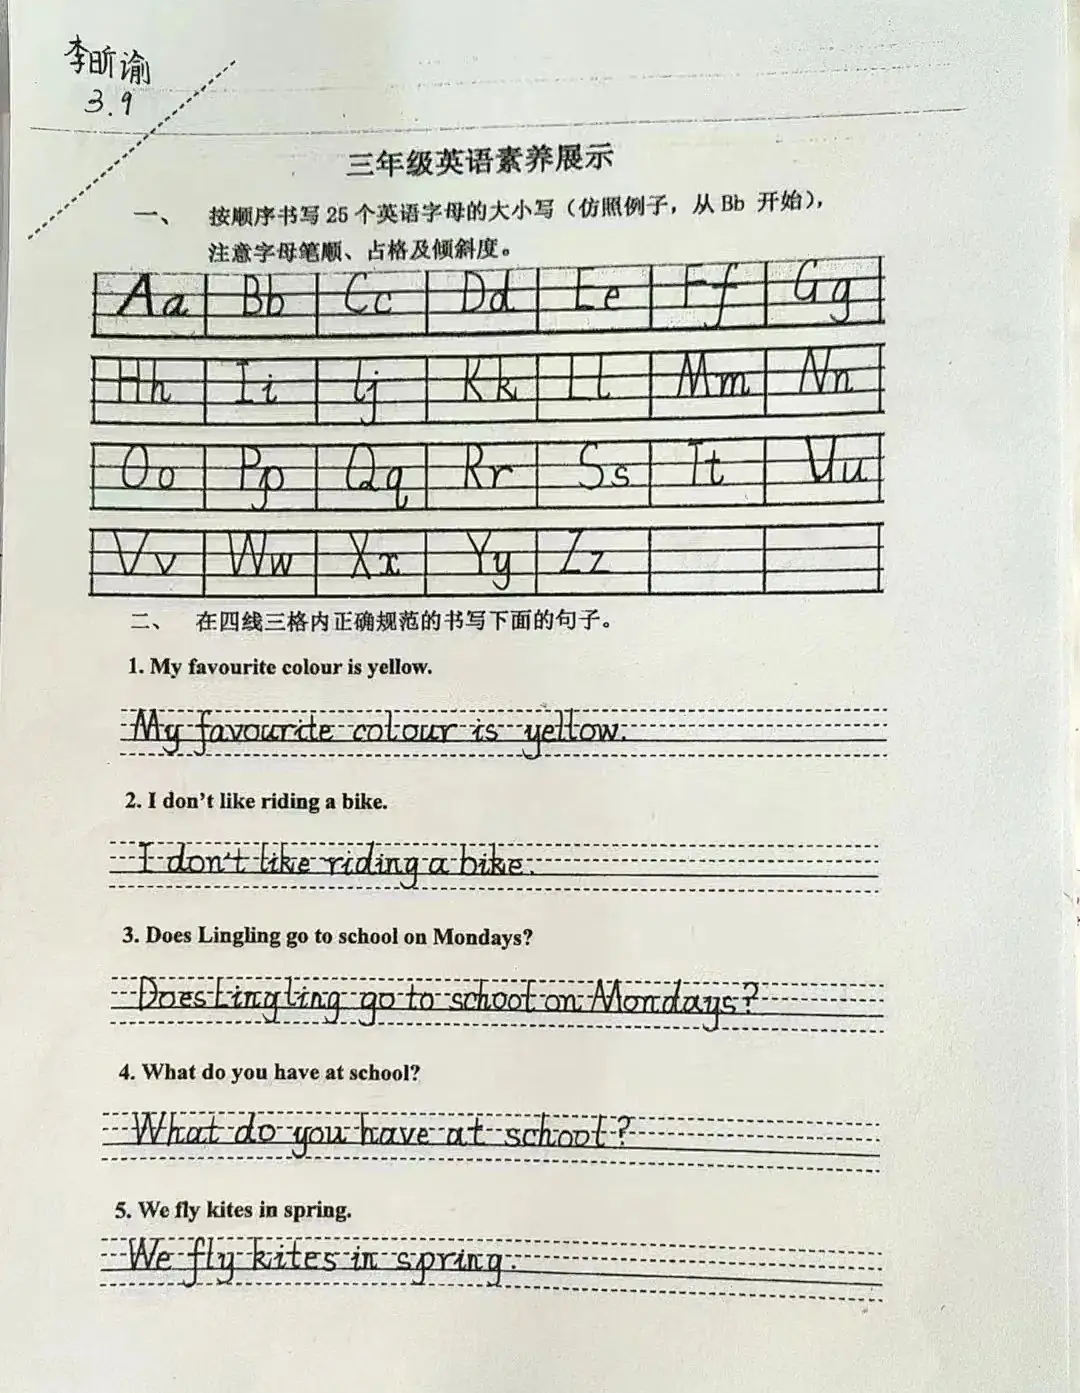 李昕谕
3.9
三年级英语素养展示
一、 按顺序书写 25 个英语字母的大小写（仿照例子，从 Bb 开始），
注意字母笔顺、占格及倾斜度。
Aa Bb Cc Dd Ee Ff Gg
Hh Ii Jj Kk Ll Mm Nn
Oo Pp Qq Rr Ss Tt Uu
Vv Ww Xx Yy Zz
二、 在四线三格内正确规范的书写下面的句子。
1. My favourite colour is yellow.
My favourite colour is yellow.
2. I don't like riding a bike.
I don't like riding a bike.
3. Does Lingling go to school on Mondays?
Does Lingling go to school on Mondays?
4. What do you have at school?
What do you have at school?
5. We fly kites in spring.
We fly kites in spring.